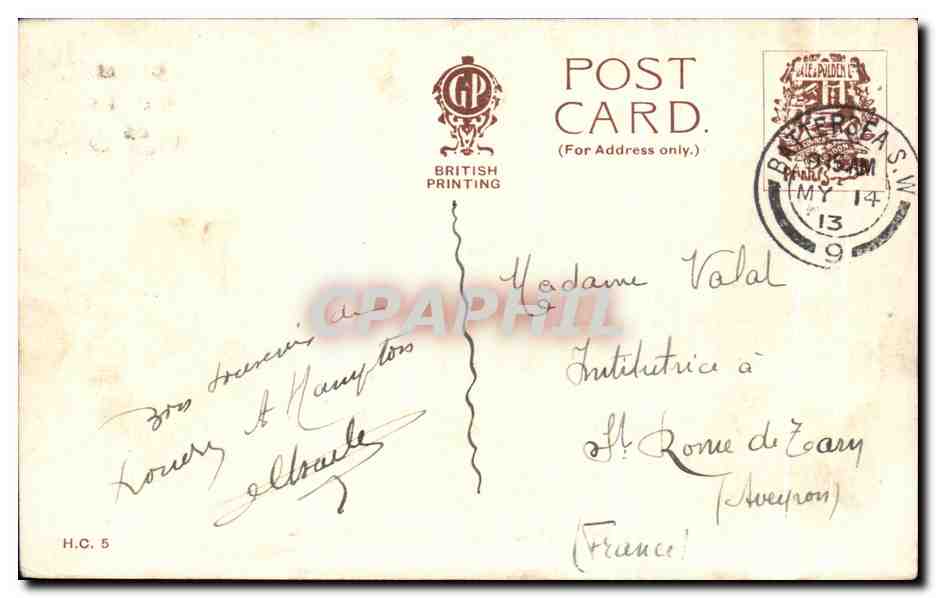 GP
BRITISH
PRINTING
POST
CARD.
(For Address only.)
GALE & POLDEN LTD
BATTERSEA S.W
9.15 AM
MY 14
13
9
Madame Valat
Institutrice à
St Rome de Tarn
(Aveyron)
(France)
Bon souvenir de
Londres A Hampton
H.C. 5
CPAPHIL